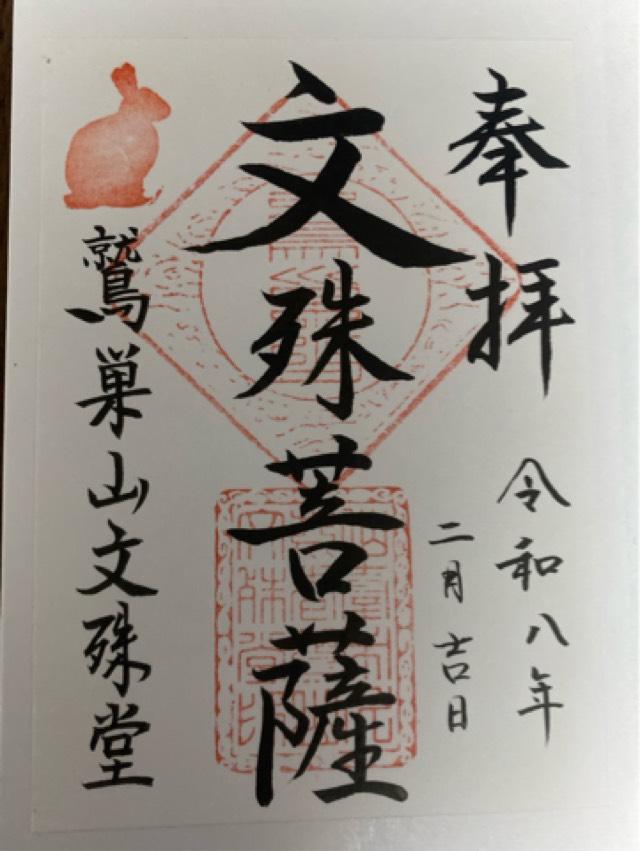 奉拝
令和八年
二月吉日
文殊菩薩
鷲巣山文殊堂